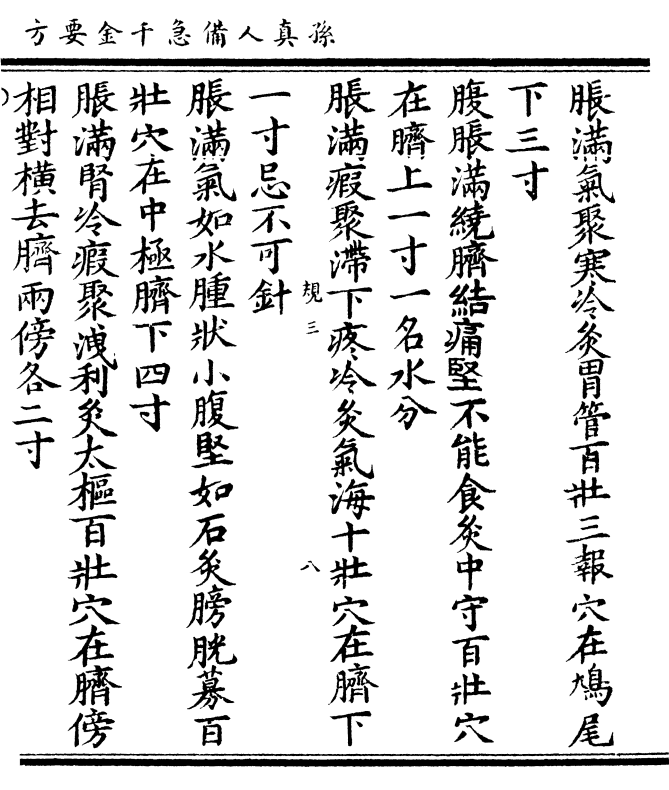 孫真人備急千金要方
脹滿氣聚寒冷灸胃管百壯三報穴在鳩尾
下三寸
腹脹滿繞臍結痛堅不能食灸中守百壯穴
在臍上一寸一名水分
脹滿瘕聚滯下疼冷灸氣海十壯穴在臍下
一寸忌不可針
規三
八
脹滿氣如水腫狀小腹堅如石灸膀胱募百
壯穴在中極臍下四寸
脹滿腎冷瘕聚洩利灸太樞百壯穴在臍傍
相對橫去臍兩傍各二寸